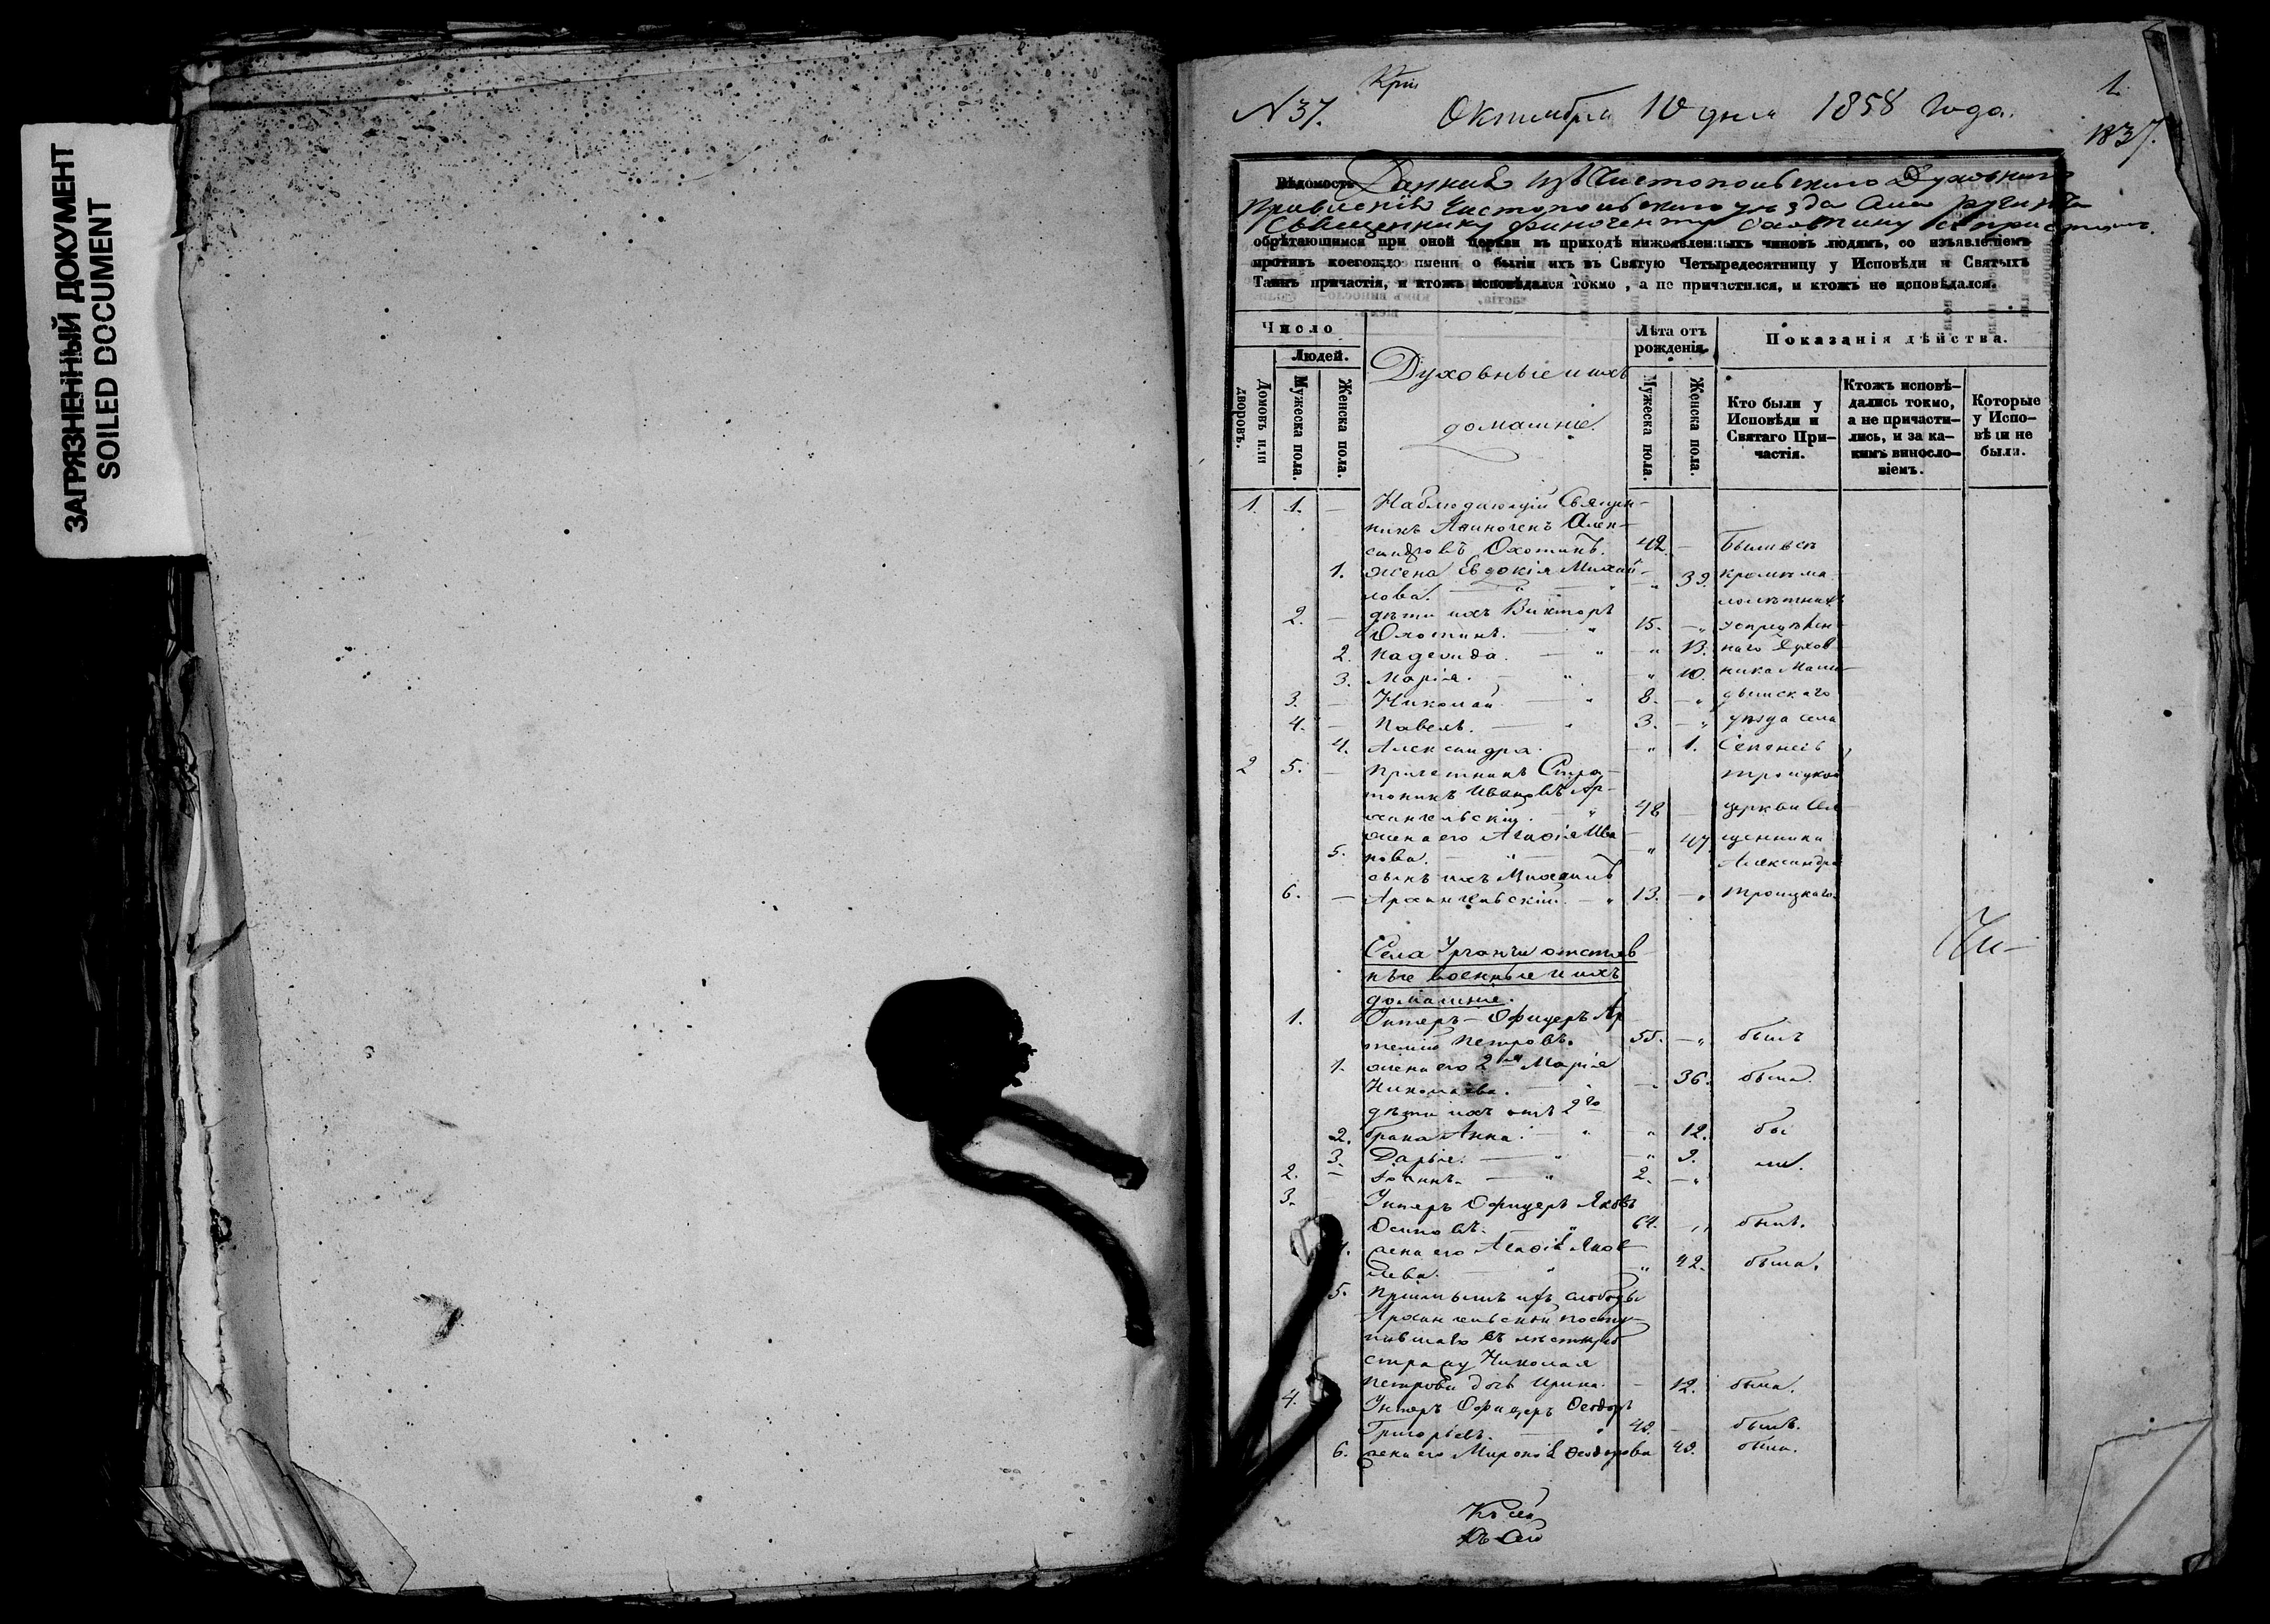 ЗАГРЯЗНЕННЫЙ ДОКУМЕНТ
SOILED DOCUMENT
1.
N 37.
Октября 10 дня 1858 года.
1837.
Вѣдомость Данная изъ Чистопольского Духовнаго
Правленія Чистопольского уѣзда села
Священнику
обрѣтающимся при оной церкви въ приходѣ нижеявленныхъ чиновъ людямъ, со изъявленіемъ
противъ коегождо имени о бытіи ихъ въ Святую Четыредесятницу у Исповѣди и Святыхъ
Таинъ причастія, и ктожъ исповѣдался токмо, а не причастился, и ктожъ не исповѣдался.
Число
Людей.
Домовъ или дворовъ.
Мужеска пола.
Женска пола.
Духовные и ихъ
домашніе.
Лѣта отъ
рожденія.
Мужеска пола.
Женска пола.
Показанія дѣйства.
Кто были у
Исповѣди и
Святаго При-
частія.
Ктожъ исповѣ-
дались токмо,
а не причасти-
лись, и за ка-
кимъ винносло-
віемъ.
Которые
у Испо-
вѣди не
были.
1. 1. — Наблюдающій Священ-
никъ Алек-
сандровъ Охотинъ. 42. — Были всѣ
1. жена Евдокія Михай- 39. кромѣ ма-
лова. лолѣтнихъ
2. — дѣти ихъ Викторъ
Охотинъ. 15. —
2. Надежда. 13. наго Духов-
3. Марія. 10. ника Мама-
3. — Николай. 8. дышскаго
4. — Павелъ. 3. уѣзда села
4. Александра. 1.
2 5. — Причетникъ Стра- Троицкой
тоникъ Ивановъ Ар-
хангельскій. 48 — церкви Свя-
жена его Агафія Ива- 47. щенника
5. нова. Александра
сынъ ихъ Михаилъ
6. — Архангельскій. 13. Троицкаго.
Чи-
Села Урганчи отстав-
ные военные и ихъ
домашніе.
1. Унтеръ-Офицеръ Ар-
темій Петровъ. 55. — былъ
1. жена его 2я Марія
Николаева. 36. была.
дѣти ихъ отъ 2го
2. брака Анна. 12. бы
3. Дарья. 9. ли.
2. — Іоаннъ. 2.
3. Унтеръ Офицеръ Яковъ
Осиповъ. 64. былъ.
жена его Агафія Яков-
лева. 42. была.
5. Пріемышъ изъ слободы
Архангельской посту-
пившаго въ
стражу Николая
Петрова дочь Ирина. 12. была.
4. Унтеръ Офицеръ Ѳеодоръ
Григорьевъ. 42. былъ.
6. жена его Ѳеодорова 42. была.